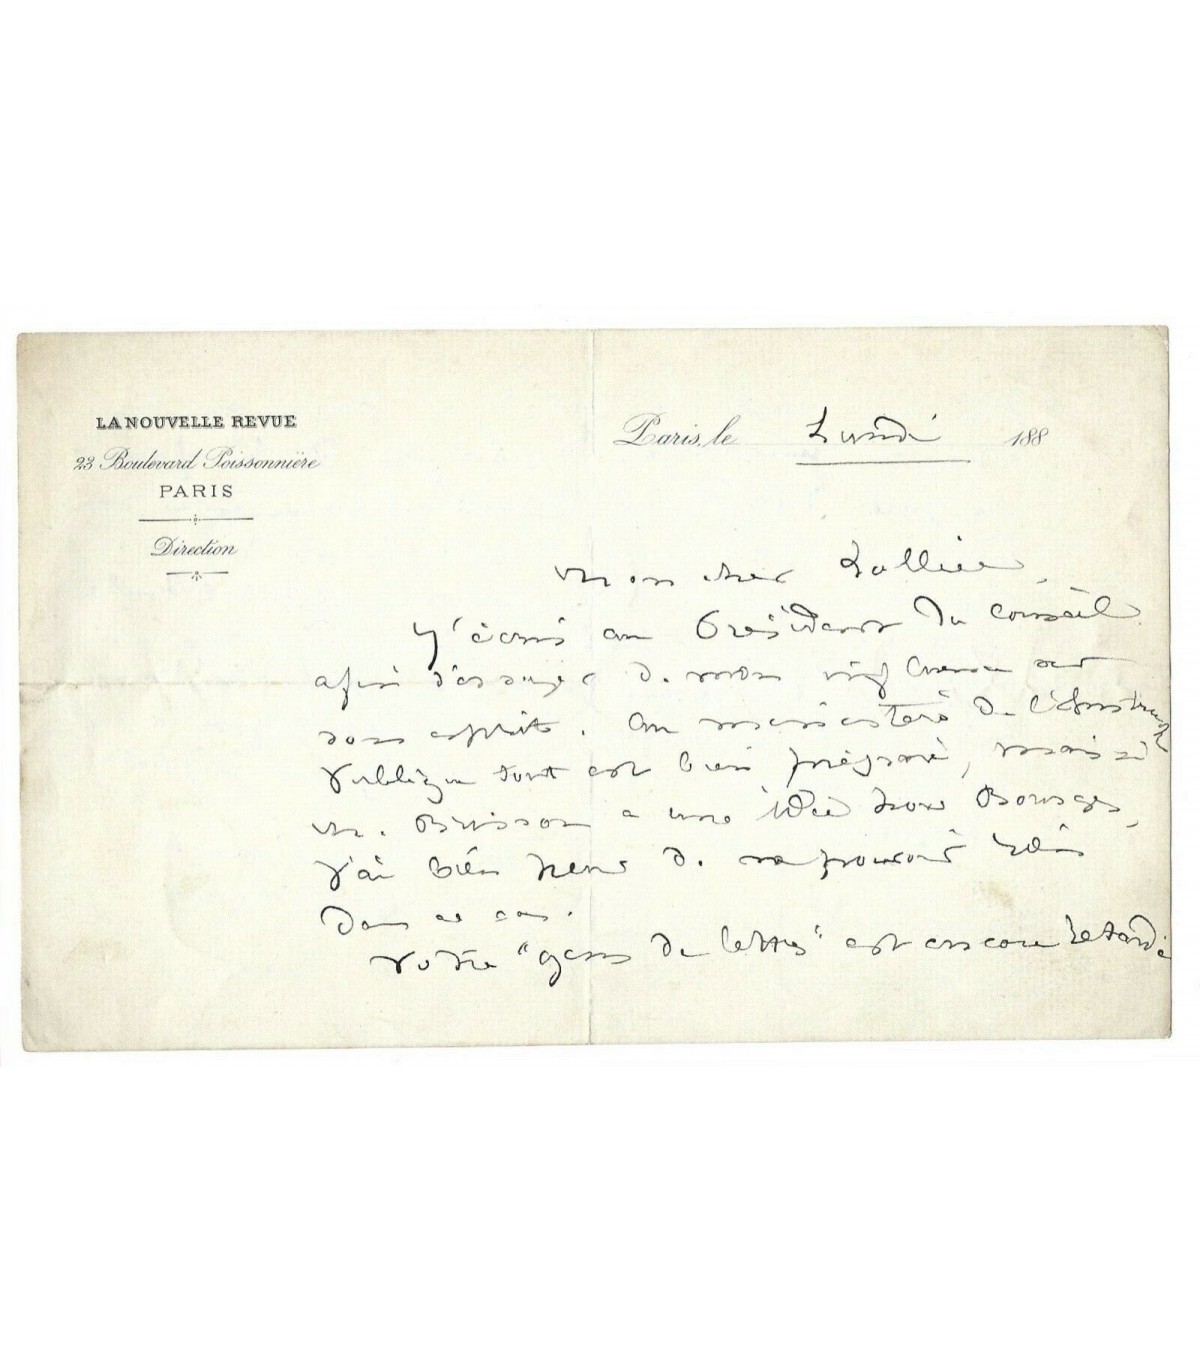 LA NOUVELLE REVUE
23 Boulevard Poissonnière
PARIS
Direction
Paris, le Lundi 188
Mon cher Lolliée,
J'écris au Président du Conseil
afin d'essayer de mon influence sur
son esprit. Au ministère de l'Instruct
Publique tout est bien préparé, mais si
M. Brisson a une idée pour Bourges,
j'ai bien peur de ne pouvoir rien
dans ce cas.
Votre "gens de lettres" est encore retardé